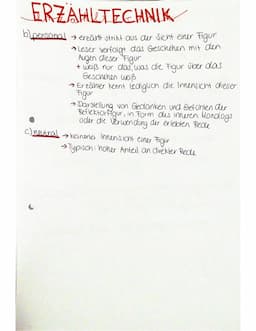 ERZÄHLTECHNIK
b) personal → erzählt strikt aus der Sicht einer Figur
→ Leser verfolgt das Geschehen mit den
Augen dieser Figur
+ weiß nur das, was die Figur über das
Geschehen weiß
→ Erzähler kennt lediglich die Innensicht dieser
Figur
→ Darstellung von Gedanken und Gefühlen der
Reflektorfigur, in Form des inneren Monologs
oder die Verwendung der erlebten Rede
c) neutral → keinerlei Innensicht einer Figur
→ Typisch: hoher Anteil an direkter Rede